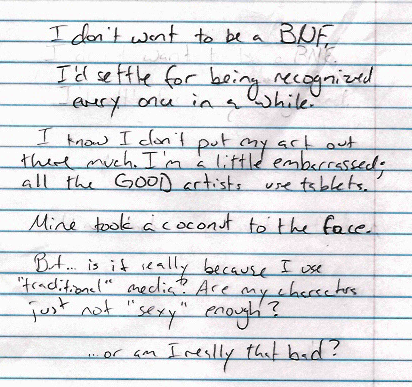 I don't want to be a BNF.
I'd settle for being recognized
every once in a while.
I know I don't put my art out
there much. I'm a little embarrassed;
all the GOOD artists use tablets.
Mine took a coconut to the face.
But... is it really because I use
"traditional" media? Are my characters
just not "sexy" enough?
...or am I really that bad?